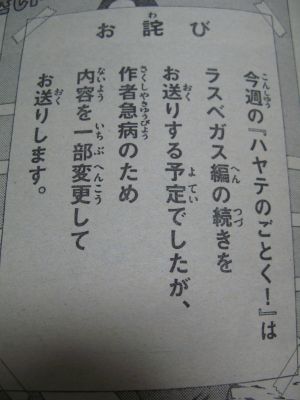 お詫び
今週の『ハヤテのごとく！』は
ラスベガス編の続きを
お送りする予定でしたが、
作者急病のため
内容を一部変更して
お送りします。